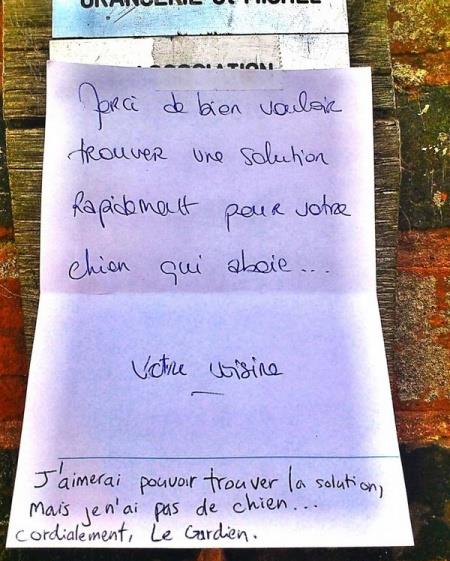 ORANGERIE St MICHEL
ASSOCIATION
Merci de bien vouloir
trouver une solution
Rapidement pour votre
chien qui aboie...
Votre voisine
J'aimerai pouvoir trouver la solution,
Mais je n'ai pas de chien...
cordialement, Le Gardien.